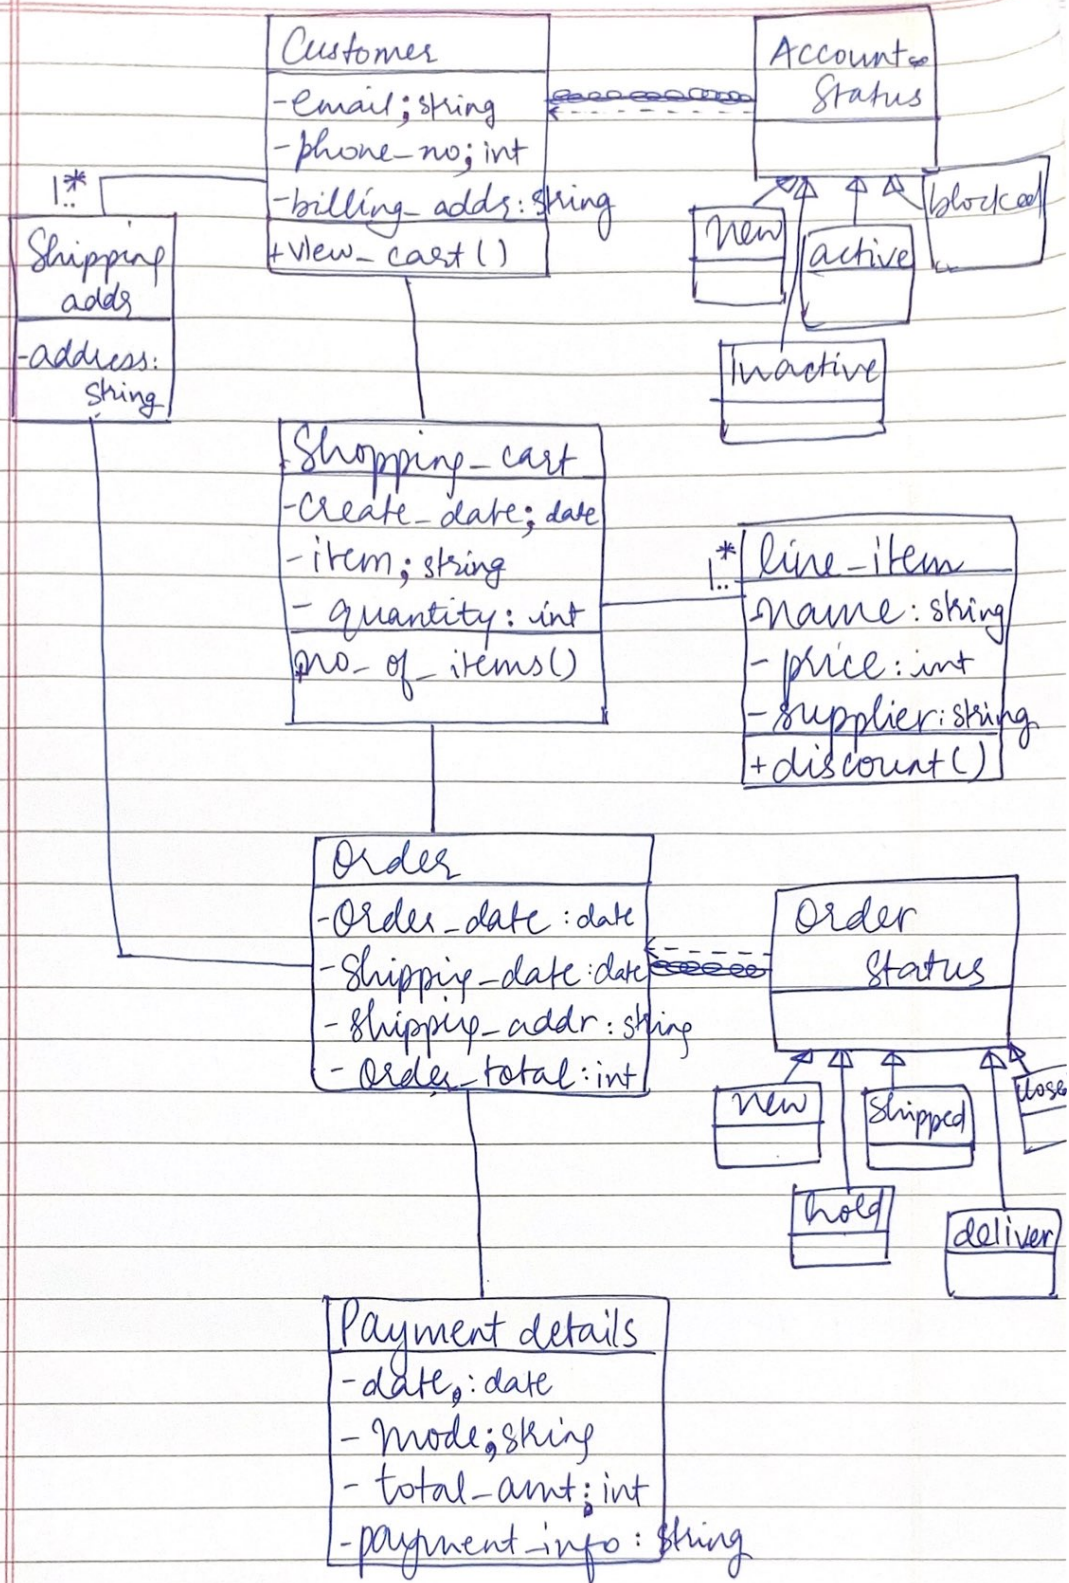 Customer
-email; string
-phone_no; int
-billing_adds: string
+view_cart()
Account
Status
new
active
blocked
Inactive
1..*
Shipping
adds
-address:
string
Shopping_cart
-create_date; date
-item; string
- quantity: int
no_of_items()
1..*
line_item
-name: string
- price: int
- supplier: string
+discount()
Order
-Order_date: date
-shippiy_date: date
- shippiy_addr: string
- Order_total: int
Order
status
new
hold
shipped
deliver
close
Payment details
-date,: date
- Mode; string
- total_amt; int
-payment_info: string